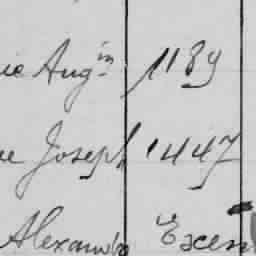 ie Augin 1189
ue Joseph 1447
Alexand Exem